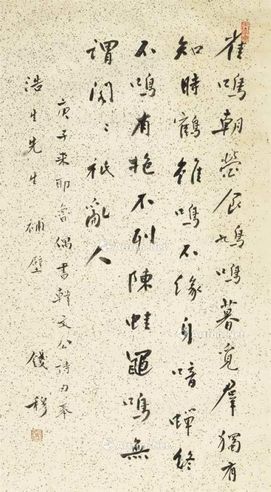 雀鳴朝營食鳩鳴暮覓群獨有
知時鶴雖鳴不緣身喑蟬終
不鳴有抱不列陳蛙黽鳴無
謂閤〻祇亂人
庚子來耶魯偶書韓文公詩奉
浩生先生補壁 錢穆